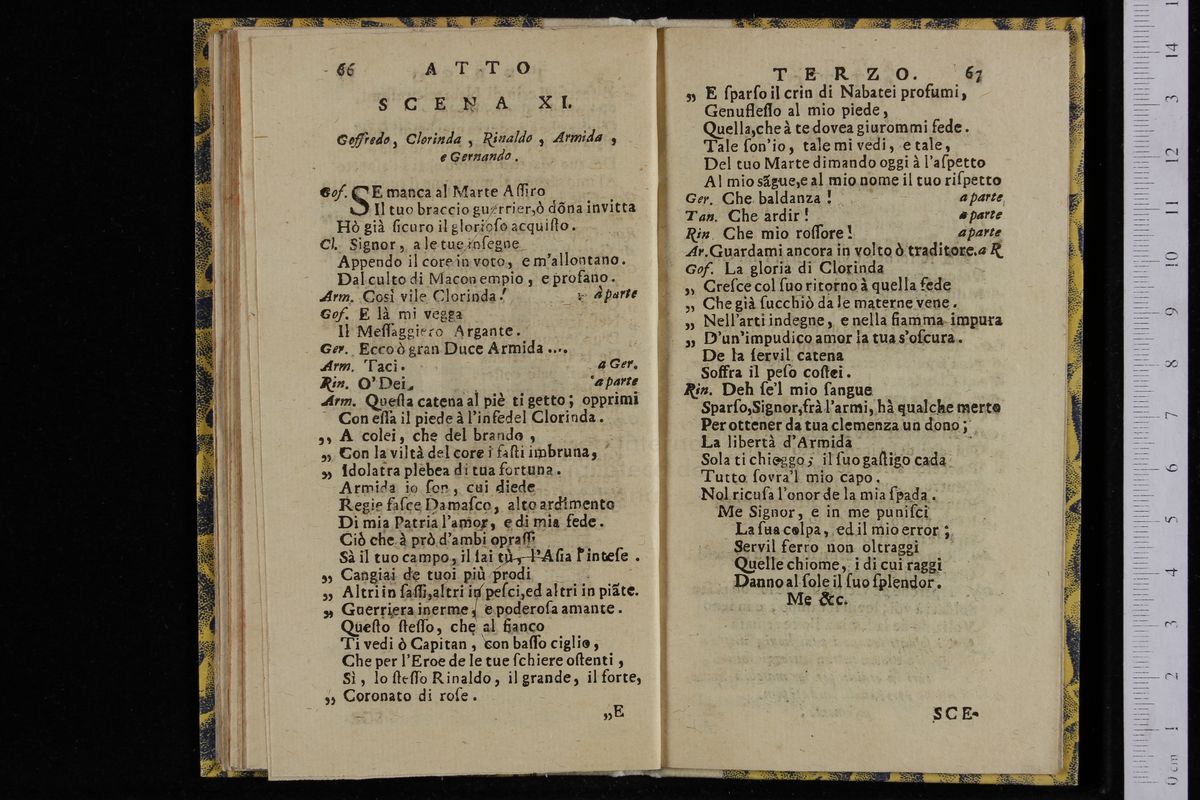 66 ATTO
SCENA XI.
Goffredo, Clorinda, Rinaldo, Armida,
e Gernando.
Gof. SE manca al Marte Aſſiro
Il tuo braccio guerrier,ò dõna invitta
Hò già ſicuro il glorioſo acquiſto.
Cl. Signor, a le tue inſegne
Appendo il core in voto, e m'allontano.
Dal culto di Macon empio, e profano.
Arm. Così vile Clorinda! à parte
Gof. E là mi vegga
Il Meſſaggiero Argante.
Ger. Ecco ò gran Duce Armida ....
Arm. Taci. a Ger.
Rin. O' Dei. a parte
Arm. Queſta catena al piè ti getto; opprimi
Con eſſa il piede à l'infedel Clorinda.
„ A colei, che del brando,
„ Con la viltà del core i faſti imbruna,
„ Idolatra plebea di tua fortuna.
Armida io ſon, cui diede
Regie faſce Damaſco, alto ardimento
Di mia Patria l'amor, e di mia fede.
Ciò che à prò d'ambi opraſſi
Sà il tuo campo, il ſai tù, l'Aſia l'inteſe.
„ Cangiai de tuoi più prodi
„ Altri in ſaſſi,altri in peſci,ed altri in piãte.
„ Guerriera inerme, e poderoſa amante.
Queſto ſteſſo, che al fianco
Ti vedi ò Capitan, con baſſo ciglio,
Che per l'Eroe de le tue ſchiere oſtenti,
Sì, lo ſteſſo Rinaldo, il grande, il forte,
„ Coronato di roſe.
„E
TERZO. 67
„ E ſparſo il crin di Nabatei profumi,
Genufleſſo al mio piede,
Quella,che à te dovea giurommi fede.
Tale ſon'io, tale mi vedi, e tale,
Del tuo Marte dimando oggi à l'aſpetto
Al mio sãgue,e al mio nome il tuo riſpetto
Ger. Che baldanza! a parte
Tan. Che ardir! a parte
Rin Che mio roſſore! a parte
Ar. Guardami ancora in volto ò traditore. a R
Gof. La gloria di Clorinda
„ Creſce col ſuo ritorno à quella fede
„ Che già ſucchiò da le materne vene.
„ Nell'arti indegne, e nella fiamma impura
„ D'un'impudico amor la tua s'oſcura.
De la ſervil catena
Soffra il peſo coſtei.
Rin. Deh ſe'l mio ſangue
Sparſo,Signor,frà l'armi, hà qualche merto
Per ottener da tua clemenza un dono;
La libertà d'Armida
Sola ti chieggo; il ſuo gaſtigo cada
Tutto ſovra'l mio capo.
Nol ricuſa l'onor de la mia ſpada.
Me Signor, e in me puniſci
La ſua colpa, ed il mio error;
Servil ferro non oltraggi
Quelle chiome, i di cui raggi
Danno al ſole il ſuo ſplendor.
Me &c.
SCE-
0 cm 1 2 3 4 5 6 7 8 9 10 11 12 3 14